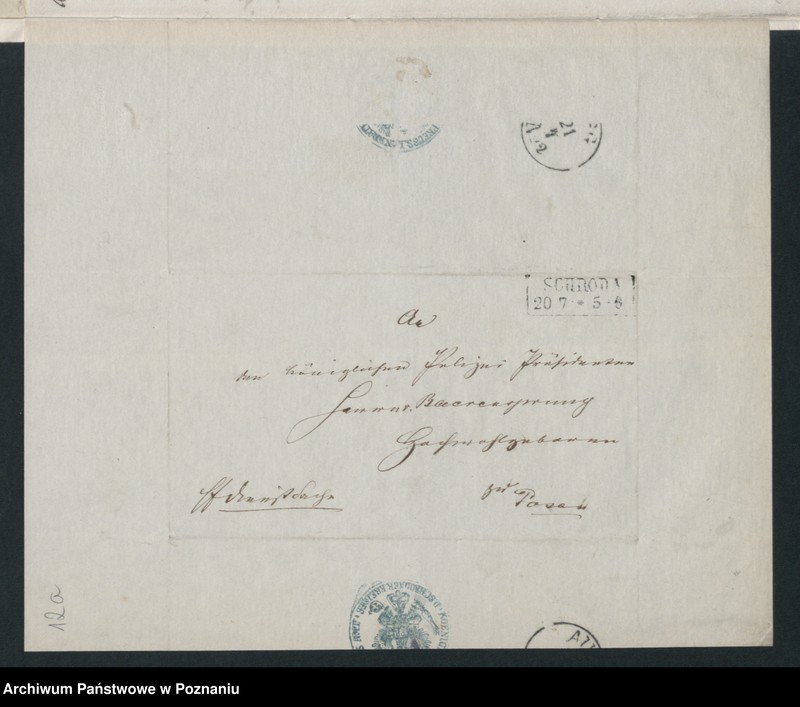 SCHRODA
20 7 * 5-6
An
den Königlichen Polizei Präsidenten
Herrn v. Baerensprung
Hochwohlgeboren
zu
Posen
Dienstsache
12a
Archiwum Państwowe w Poznaniu